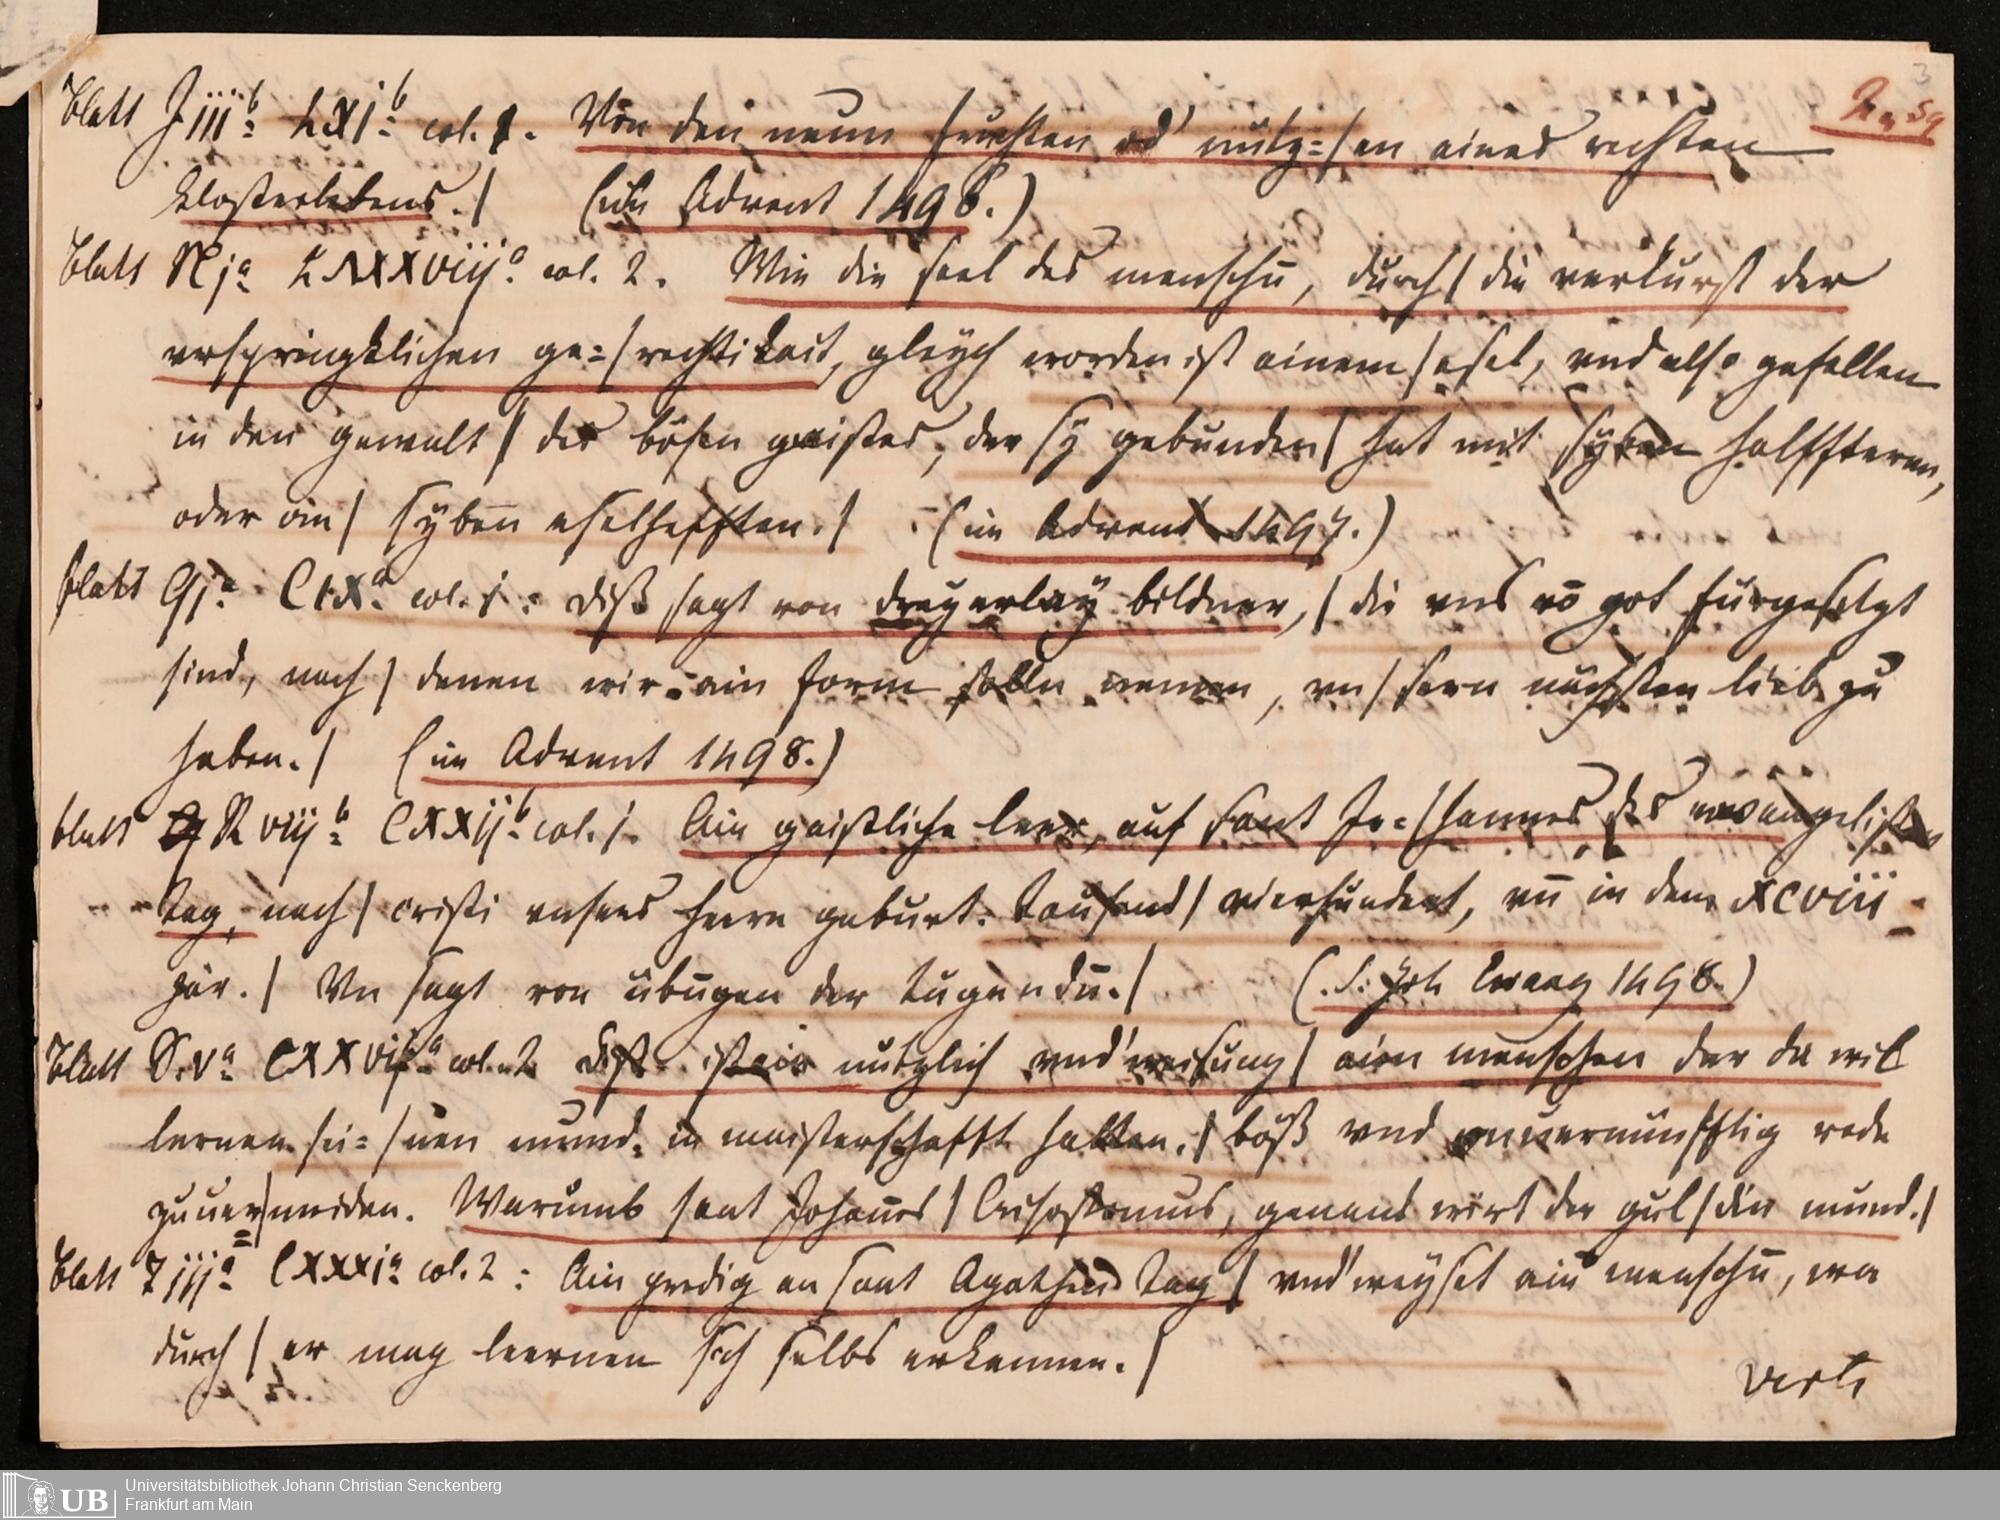 3
Blatt Jiiiᵇ. LXIᵇ. col. 1. Von den neun fruchten od' nutz=|en aines rechten
klosterlebens.| (im Advent 1498.)
Blatt Njᵃ LXXXviijᵃ. col. 2. Wie die seel des menschn̄, durch| die verlurst der
vrspringklichen ge=|rechtikait, gleych worden ist ainem| esel, vnd also gefallen
in den gewalt| des bösen gaistes, der sy gebunden| hat mit syben halffteren,
oder ain| syben eselhefften.| (im Advent 1497.)
Blatt Qjᵃ. CIXᵃ. col. j. : Diß sagt von dreyerlay bildner,| die vns vō got furgesetzt
sind, nach| denen wir ain form solln nemen, vn|sern nächsten lieb zu
haben.| (im Advent 1498.)
Blatt R viijᵇ. CXXijᵇ. col. j. Ain gaistliche leer, auf sant Jo=|hannes des ewangelisten
tag, nach| cristi vnsers herrn geburt. Tausend| vierhundert, vn̄ in dem XCVIII
jar.| Vn sagt von übungen der tugendn̄.| (S. Joh Evang 1498.)
Blatt S.vᵃ. CXXVIIᵃ. col. 2 Diß ist ain nutzlich vnd'weisung| aim menschen der da wil
lernen sei=|nen mund, in maisterschafft halten.| böß vnd vnuernünfftig rede
zuuer|meiden. Warumb sant Johānes| Crisostomus, genant wirt der gul|din mund.|
Blatt T iijᵃ. CXXXIᵃ. col. 2 : Ain predig an sant Agathens tag| vnd'weyset ain menschn̄, wa
durch| er mag leernen sich selbs erkennen.|
verte
Universitätsbibliothek Johann Christian Senckenberg
Frankfurt am Main
UB